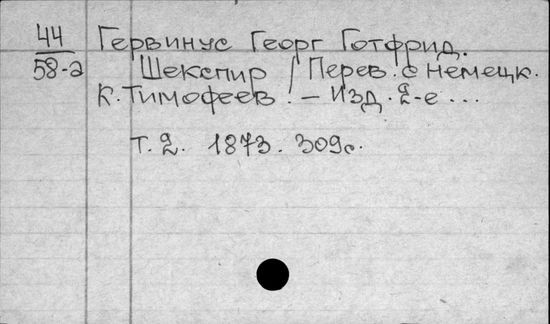 44 Гервинус Георг Готфрид.
58-а Шекспир / Перев. с немецк.
К. Тимофеев. – Изд. 2-е ...
Т. 2. 1873. 309с.